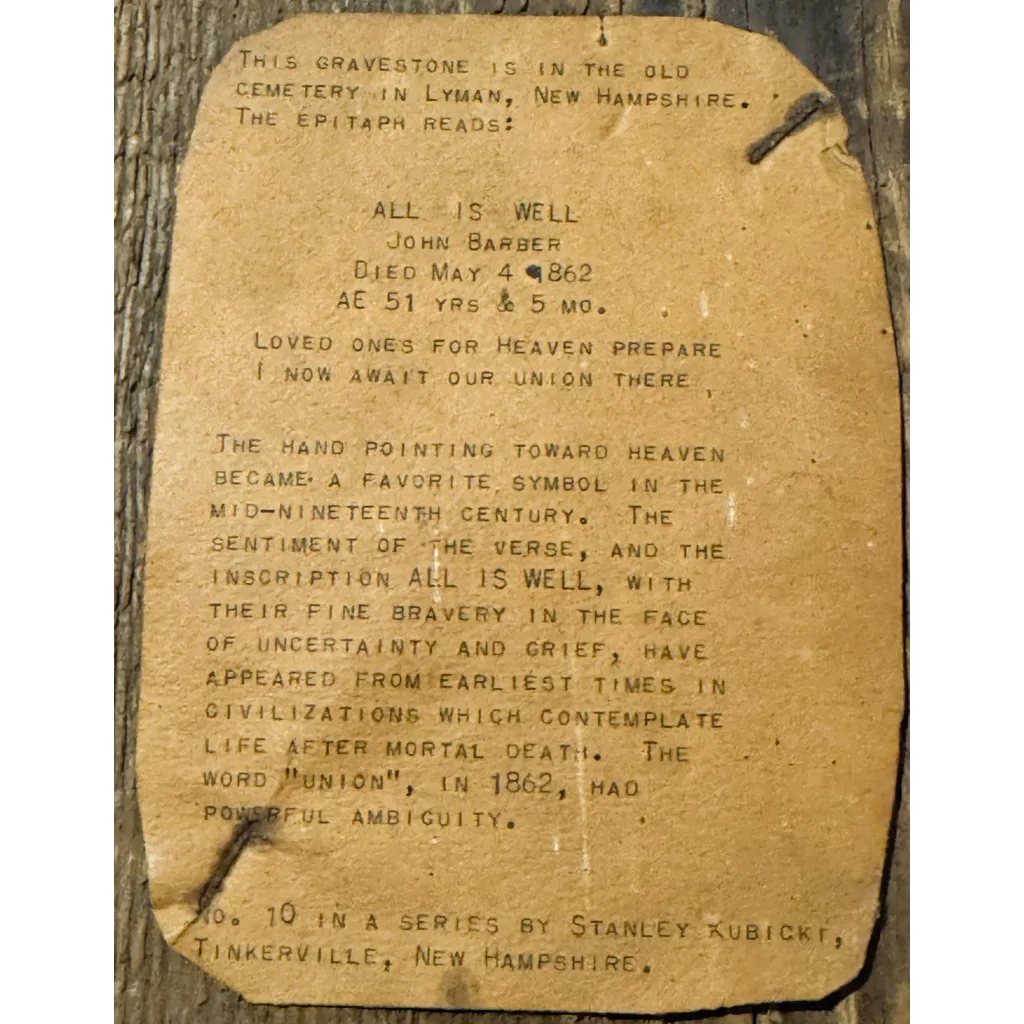 This gravestone is in the old
cemetery in Lyman, New Hampshire.
The epitaph reads:
ALL IS WELL
John Barber
Died May 4 1862
AE 51 yrs & 5 mo.
Loved ones for Heaven prepare
I now await our union there
The hand pointing toward heaven
became a favorite symbol in the
mid-nineteenth century. The
sentiment of the verse, and the
inscription ALL IS WELL, with
their fine bravery in the face
of uncertainty and grief, have
appeared from earliest times in
civilizations which contemplate
life after mortal death. The
word "union", in 1862, had
powerful ambiguity.
No. 10 in a series by Stanley Kubicki,
Tinkerville, New Hampshire.